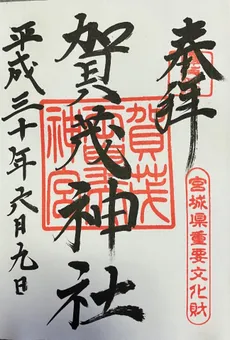 奉拝
宮城県重要文化財
賀茂神社
賀茂
神宮
平成三十年六月九日